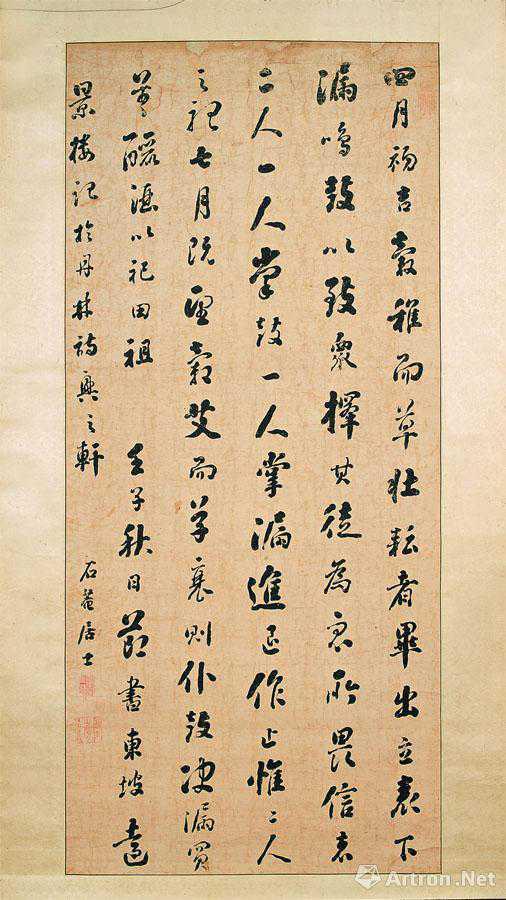 四月初吉穀稚而草壯耘者畢出立表下
漏鳴鼓以致眾擇其徒為眾所畏信者
二人一人掌鼓一人掌漏進退作止惟二人
之視七月既望穀艾而草衰則仆鼓決漏買
酒以祀田祖 壬子秋日節書東坡遠
景樓記於丹林詩興之軒 石菴居士
Artron.Net